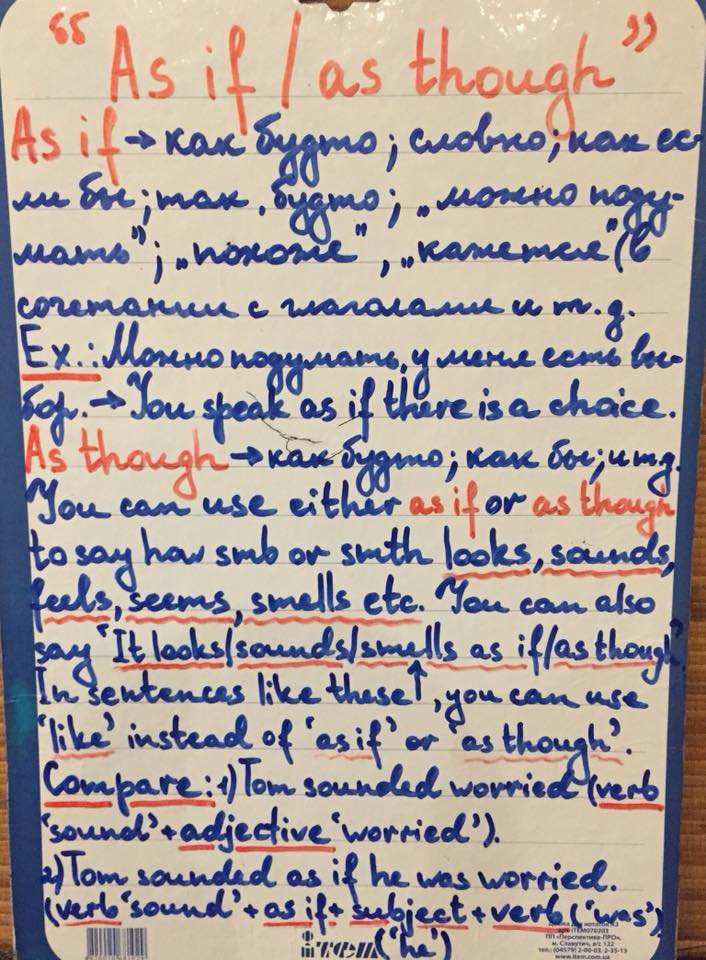 “As if / as though”
As if → как будто; словно; как ес-
ли бы; так, будто; „можно поду-
мать”; „похоже”, „кажется” (в
сочетании с глаголами и т.д.
Ex.: Можно подумать, у меня есть вы-
бор. → You speak as if there is a choice.
As though → как будто; как бы; и т.д.
You can use either as if or as though
to say how smb or smth looks, sounds,
feels, seems, smells etc. You can also
say "It looks/sounds/smells as if/as though".
In sentences like these↑, you can use
'like' instead of 'as if' or 'as though'.
Compare: 1) Tom sounded worried (verb
'sound' + adjective 'worried').
2) Tom sounded as if he was worried.
(verb 'sound' + as if + subject + verb ('was')
('he')
ITEM070203
ПП «Перспектива-ПРО»,
м. Славутич, а/с 122
тел.: (04579) 2-00-03, 2-35-13
www.item.com.ua
item